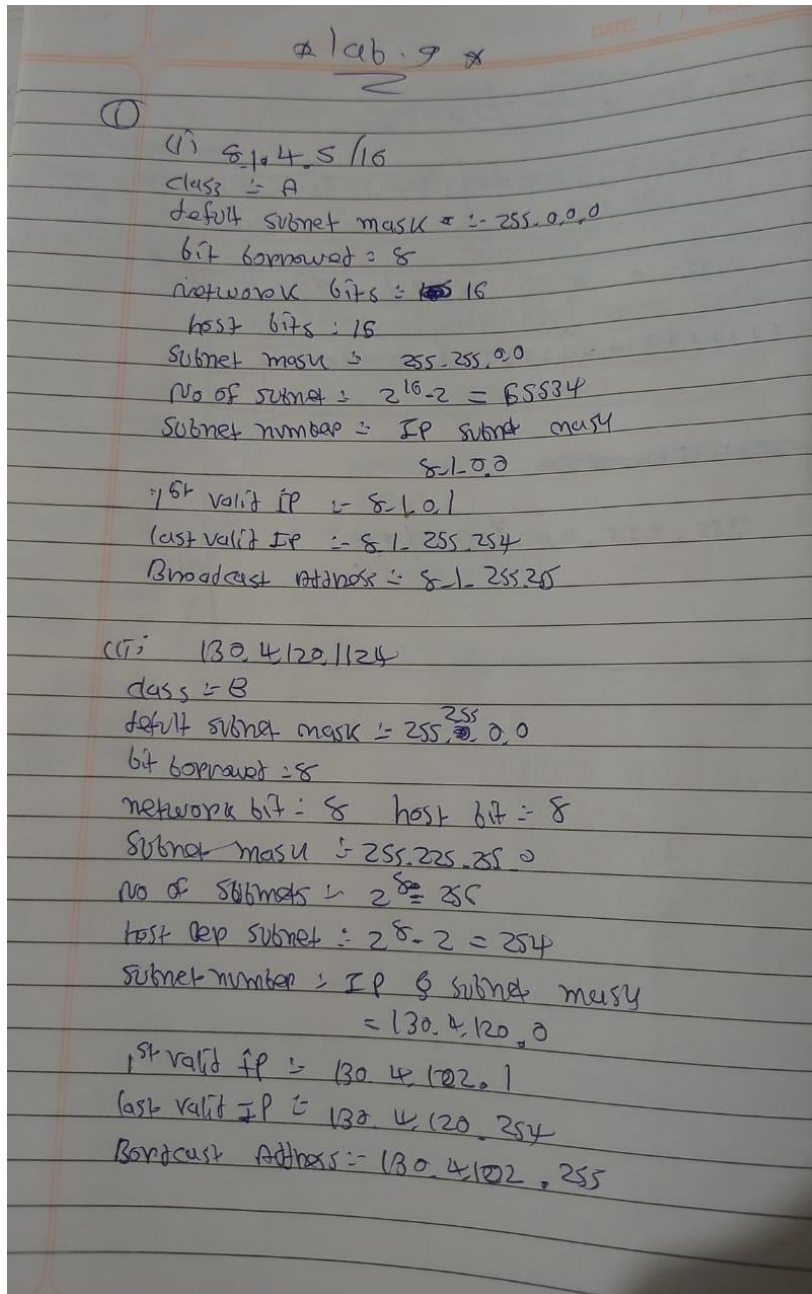 DATE: / /
* lab. 9 *
①
(i) 8.1.4.5/16
class :- A
defult subnet mask :- 255.0.0.0
bit borrowed = 8
network bits = 16
host bits : 16
subnet mask = 255.255.0.0
No of subnet = 2^16-2 = 65534
Subnet number = IP subnet mask
8.1.0.0
1st valid IP :- 8.1.0.1
last valid IP :- 8.1.255.254
Broadcast Address :- 8.1.255.25
(ii) 130.4.120.1/24
class :- B
defult subnet mask :- 255.255.0.0
bit borrowed = 8
network bit = 8 host bit :- 8
Subnet mask :- 255.225.25.0
No of subnets :- 2^8 = 256
host per subnet :- 2^8 - 2 = 254
subnet number :- IP & subnet mask
= 130.4.120.0
1st valid IP :- 130.4.102.1
last valid IP :- 130.4.120.254
Bordcast Address :- 130.4.102.255